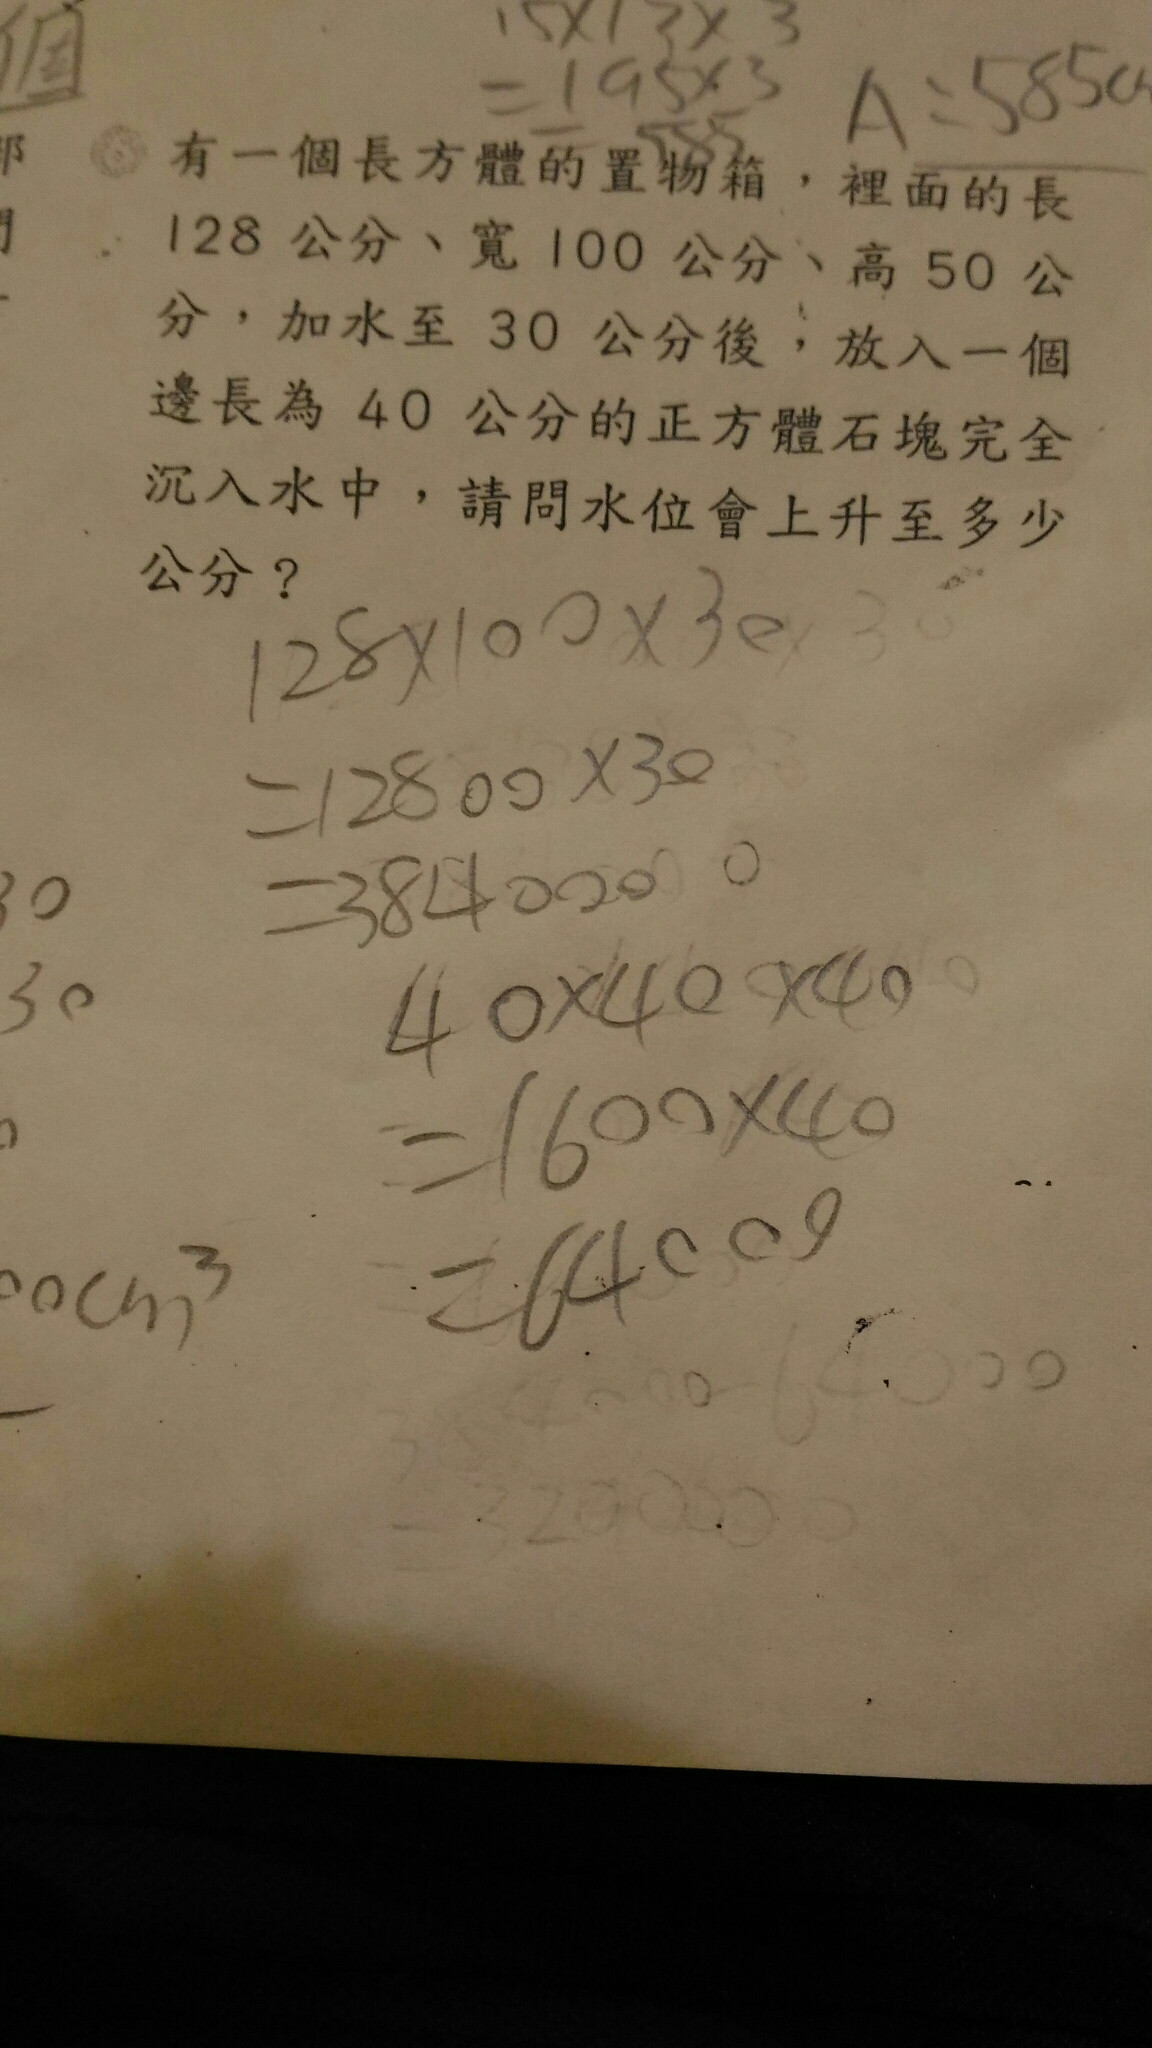 個
15×13×3
=195×3
=585
A=585c
有一個長方體的置物箱，裡面的長
128 公分、寬 100 公分、高 50 公
分，加水至 30 公分後，放入一個
邊長為 40 公分的正方體石塊完全
沉入水中，請問水位會上升至多少
公分？
128×100×30
=12800×30
=384000 0
40×40×40
=1600×40
=64000
64000
=320000 0
30
30
0
00cm³